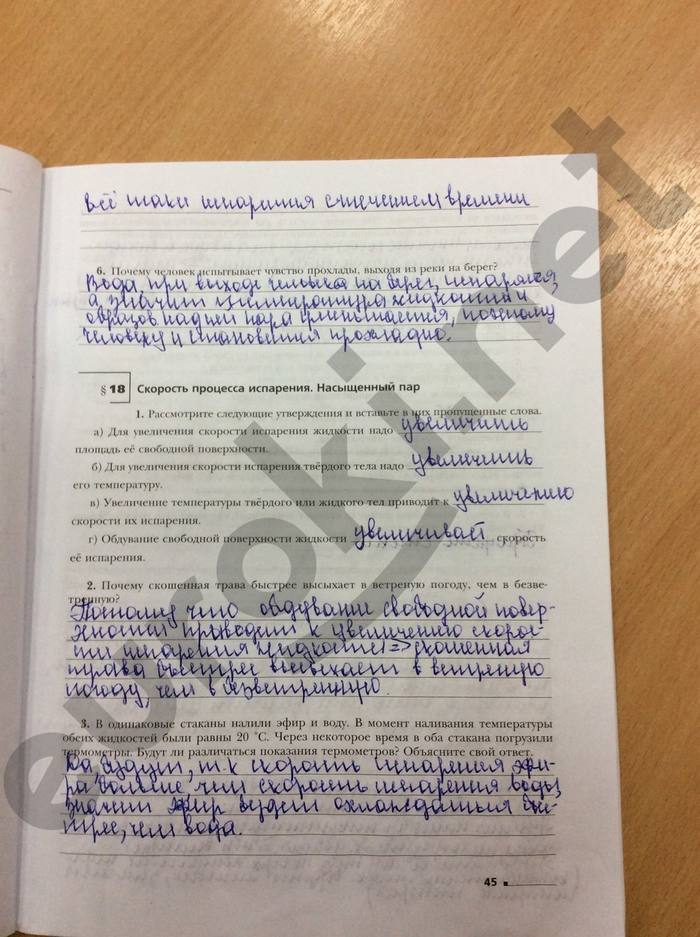 всё таки испарится с течением времени
6. Почему человек испытывает чувство прохлады, выходя из реки на берег?
Вода, при выходе человека на берег, испаряется,
а значит и температура жидкости и
образов. над ней пара уменьшается, поэтому
человеку и становится прохладно.
§ 18 Скорость процесса испарения. Насыщенный пар
1. Рассмотрите следующие утверждения и вставьте в них пропущенные слова.
а) Для увеличения скорости испарения жидкости надо увеличить
площадь её свободной поверхности.
б) Для увеличения скорости испарения твёрдого тела надо увеличить
его температуру.
в) Увеличение температуры твёрдого или жидкого тел приводит к увеличению
скорости их испарения.
г) Обдувание свободной поверхности жидкости увеличивает скорость
её испарения.
2. Почему скошенная трава быстрее высыхает в ветреную погоду, чем в безве-
тренную?
Потому что обдувание свободной повер-
хности приводит к увеличению скорос-
ти испарения жидкости => скошенная
трава быстрее высыхает в ветреную
погоду, чем в безветренную.
3. В одинаковые стаканы налили эфир и воду. В момент наливания температуры
обеих жидкостей были равны 20 °С. Через некоторое время в оба стакана погрузили
термометры. Будут ли различаться показания термометров? Объясните свой ответ.
Да, будут, т.к скорость испарения эфи-
ра больше, чем скорость испарения воды,
значит эфир будет охлаждаться быс-
трее, чем вода.
45
euroki.net